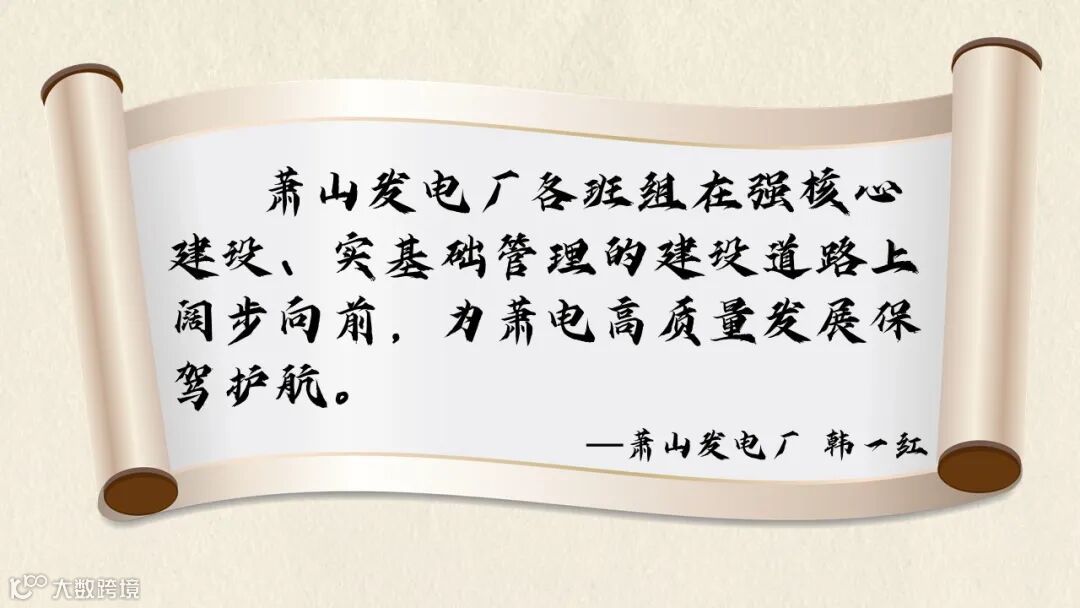 萧山发电厂各班组在强核心
建设、实基础管理的建设道路上
阔步向前，为萧电高质量发展保
驾护航。
—萧山发电厂 韩一红
大数跨境